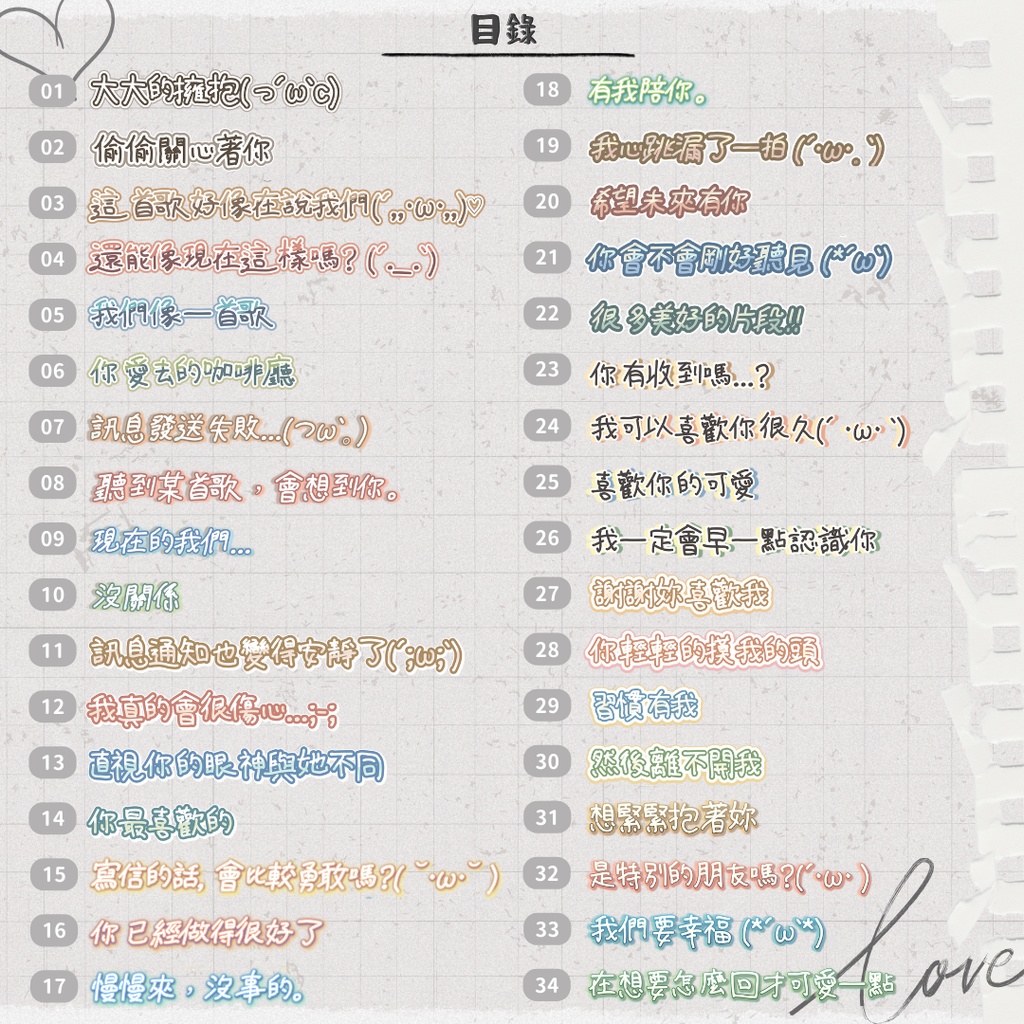 目錄
01 大大的擁抱(っ´ω`c)
02 偷偷關心著你
03 這首歌好像在說我們(´,,•ω•,,)♡
04 還能像現在這樣嗎? (´._.`)
05 我們像一首歌
06 你愛去的咖啡廳
07 訊息發送失敗...(つω`。)
08 聽到某首歌，會想到你。
09 現在的我們...
10 沒關係
11 訊息通知也變得安靜了(´;ω;`)
12 我真的會很傷心...;-;
13 直視你的眼神與她不同
14 你最喜歡的
15 寫信的話, 會比較勇敢嗎?( ˘•ω•˘ )
16 你已經做得很好了
17 慢慢來，沒事的。
18 有我陪你。
19 我心跳漏了一拍 (´•ω•。`)
20 希望未來有你
21 你會不會剛好聽見 (*´ω`)
22 很多美好的片段!!
23 你有收到嗎...?
24 我可以喜歡你很久(´•ω•`)
25 喜歡你的可愛
26 我一定會早一點認識你
27 謝謝妳喜歡我
28 你輕輕的摸我的頭
29 習慣有我
30 然後離不開我
31 想緊緊抱著妳
32 是特別的朋友嗎?(´•ω•`)
33 我們要幸福 (*´ω`*)
34 在想要怎麼回才可愛一點
Love